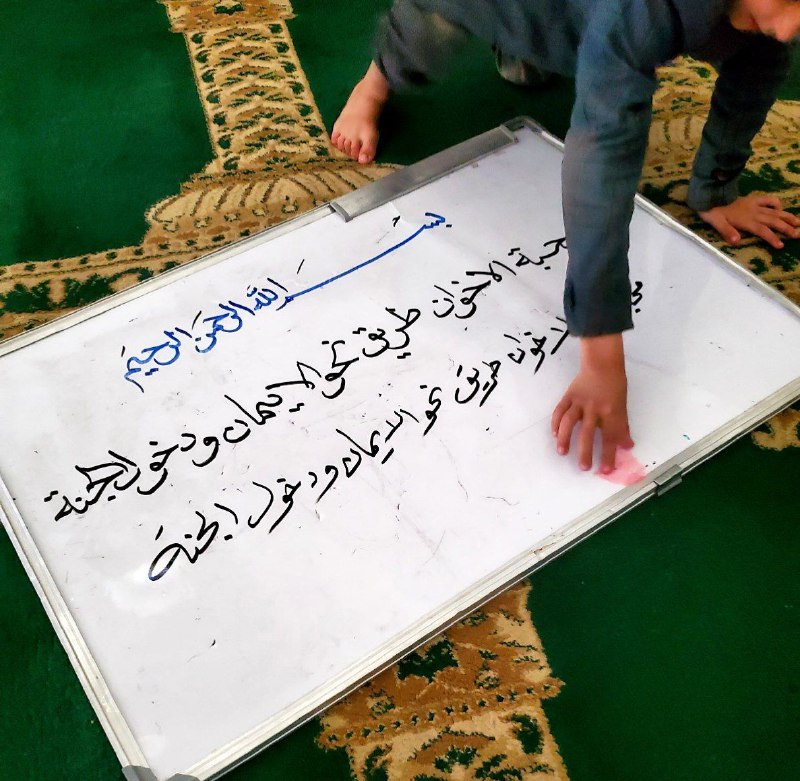 بسم الله الرحمن الرحيم
محبة الاخوان طريق نحو الايمان ودخول الجنة
الاخوان طريق نحو الايمان ودخول الجنة